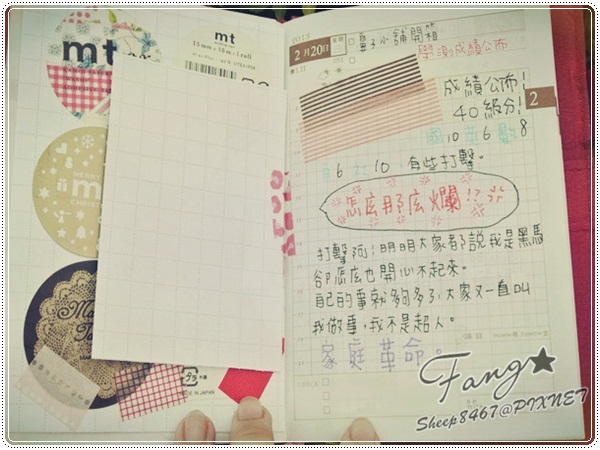 mt
mt
15mm×10m:1roll
MERRY
CHRISTMAS
MADE IN JAPAN
2013
2月20日
量子小舖開箱
學測成績公佈
成績公佈!
40級分!
國 英 數
10 6 8
自 社
6 10 有些打擊。
怎麼那麼爛!?
打擊阿!明明大家都說我是黑馬
卻怎麼也開心不起來。
自己的事就夠多了,大家又一直叫
我做事,我不是超人。
家庭革命。
2
CHECK
Fang★
Sheep8467@PIXNET